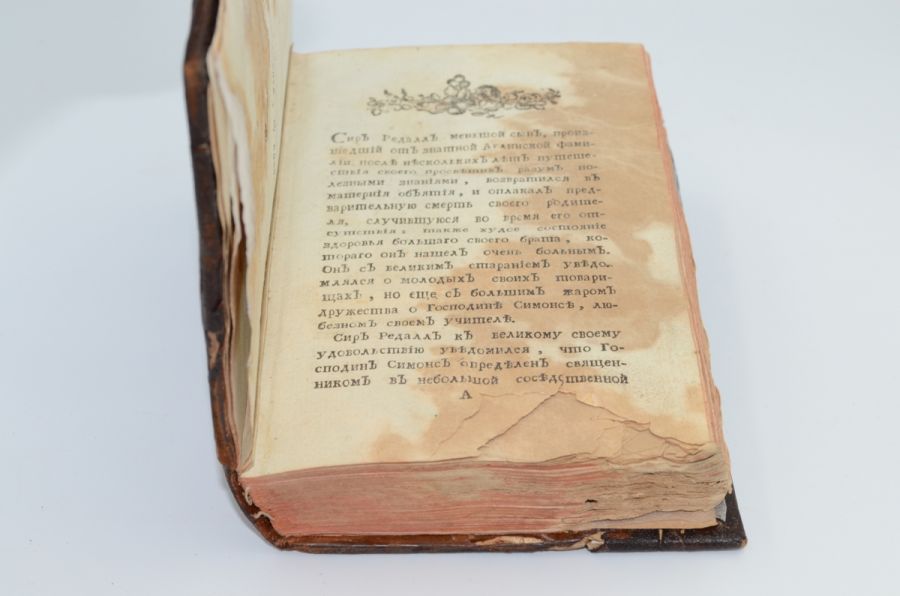 Сиръ Редаллъ меньшой сынъ, произ-
шедшій отъ знатной Аглинской фами-
ліи, послѣ нѣсколькихъ лѣтъ путеше-
ствія своего просвѣтивъ разумъ по-
лезными знаніями, возвратился въ
матернія объятія, и оплакалъ пред-
варительную смерть своего родите-
ля, случившуюся во время его от-
сутствія, также худое состояніе
здоровья большаго своего брата, ко-
тораго онъ нашелъ очень больнымъ.
Онъ съ великимъ стараніемъ увѣдо-
млялся о молодыхъ своихъ товари-
щахъ, но еще съ большимъ жаромъ
дружества о Господинѣ Симонсѣ, лю-
безномъ своемъ учителѣ.
Сиръ Редаллъ къ великому своему
удовольствію увѣдомился, что Го-
сподинъ Симонсъ опредѣленъ священ-
никомъ въ небольшой сосѣдственной
А